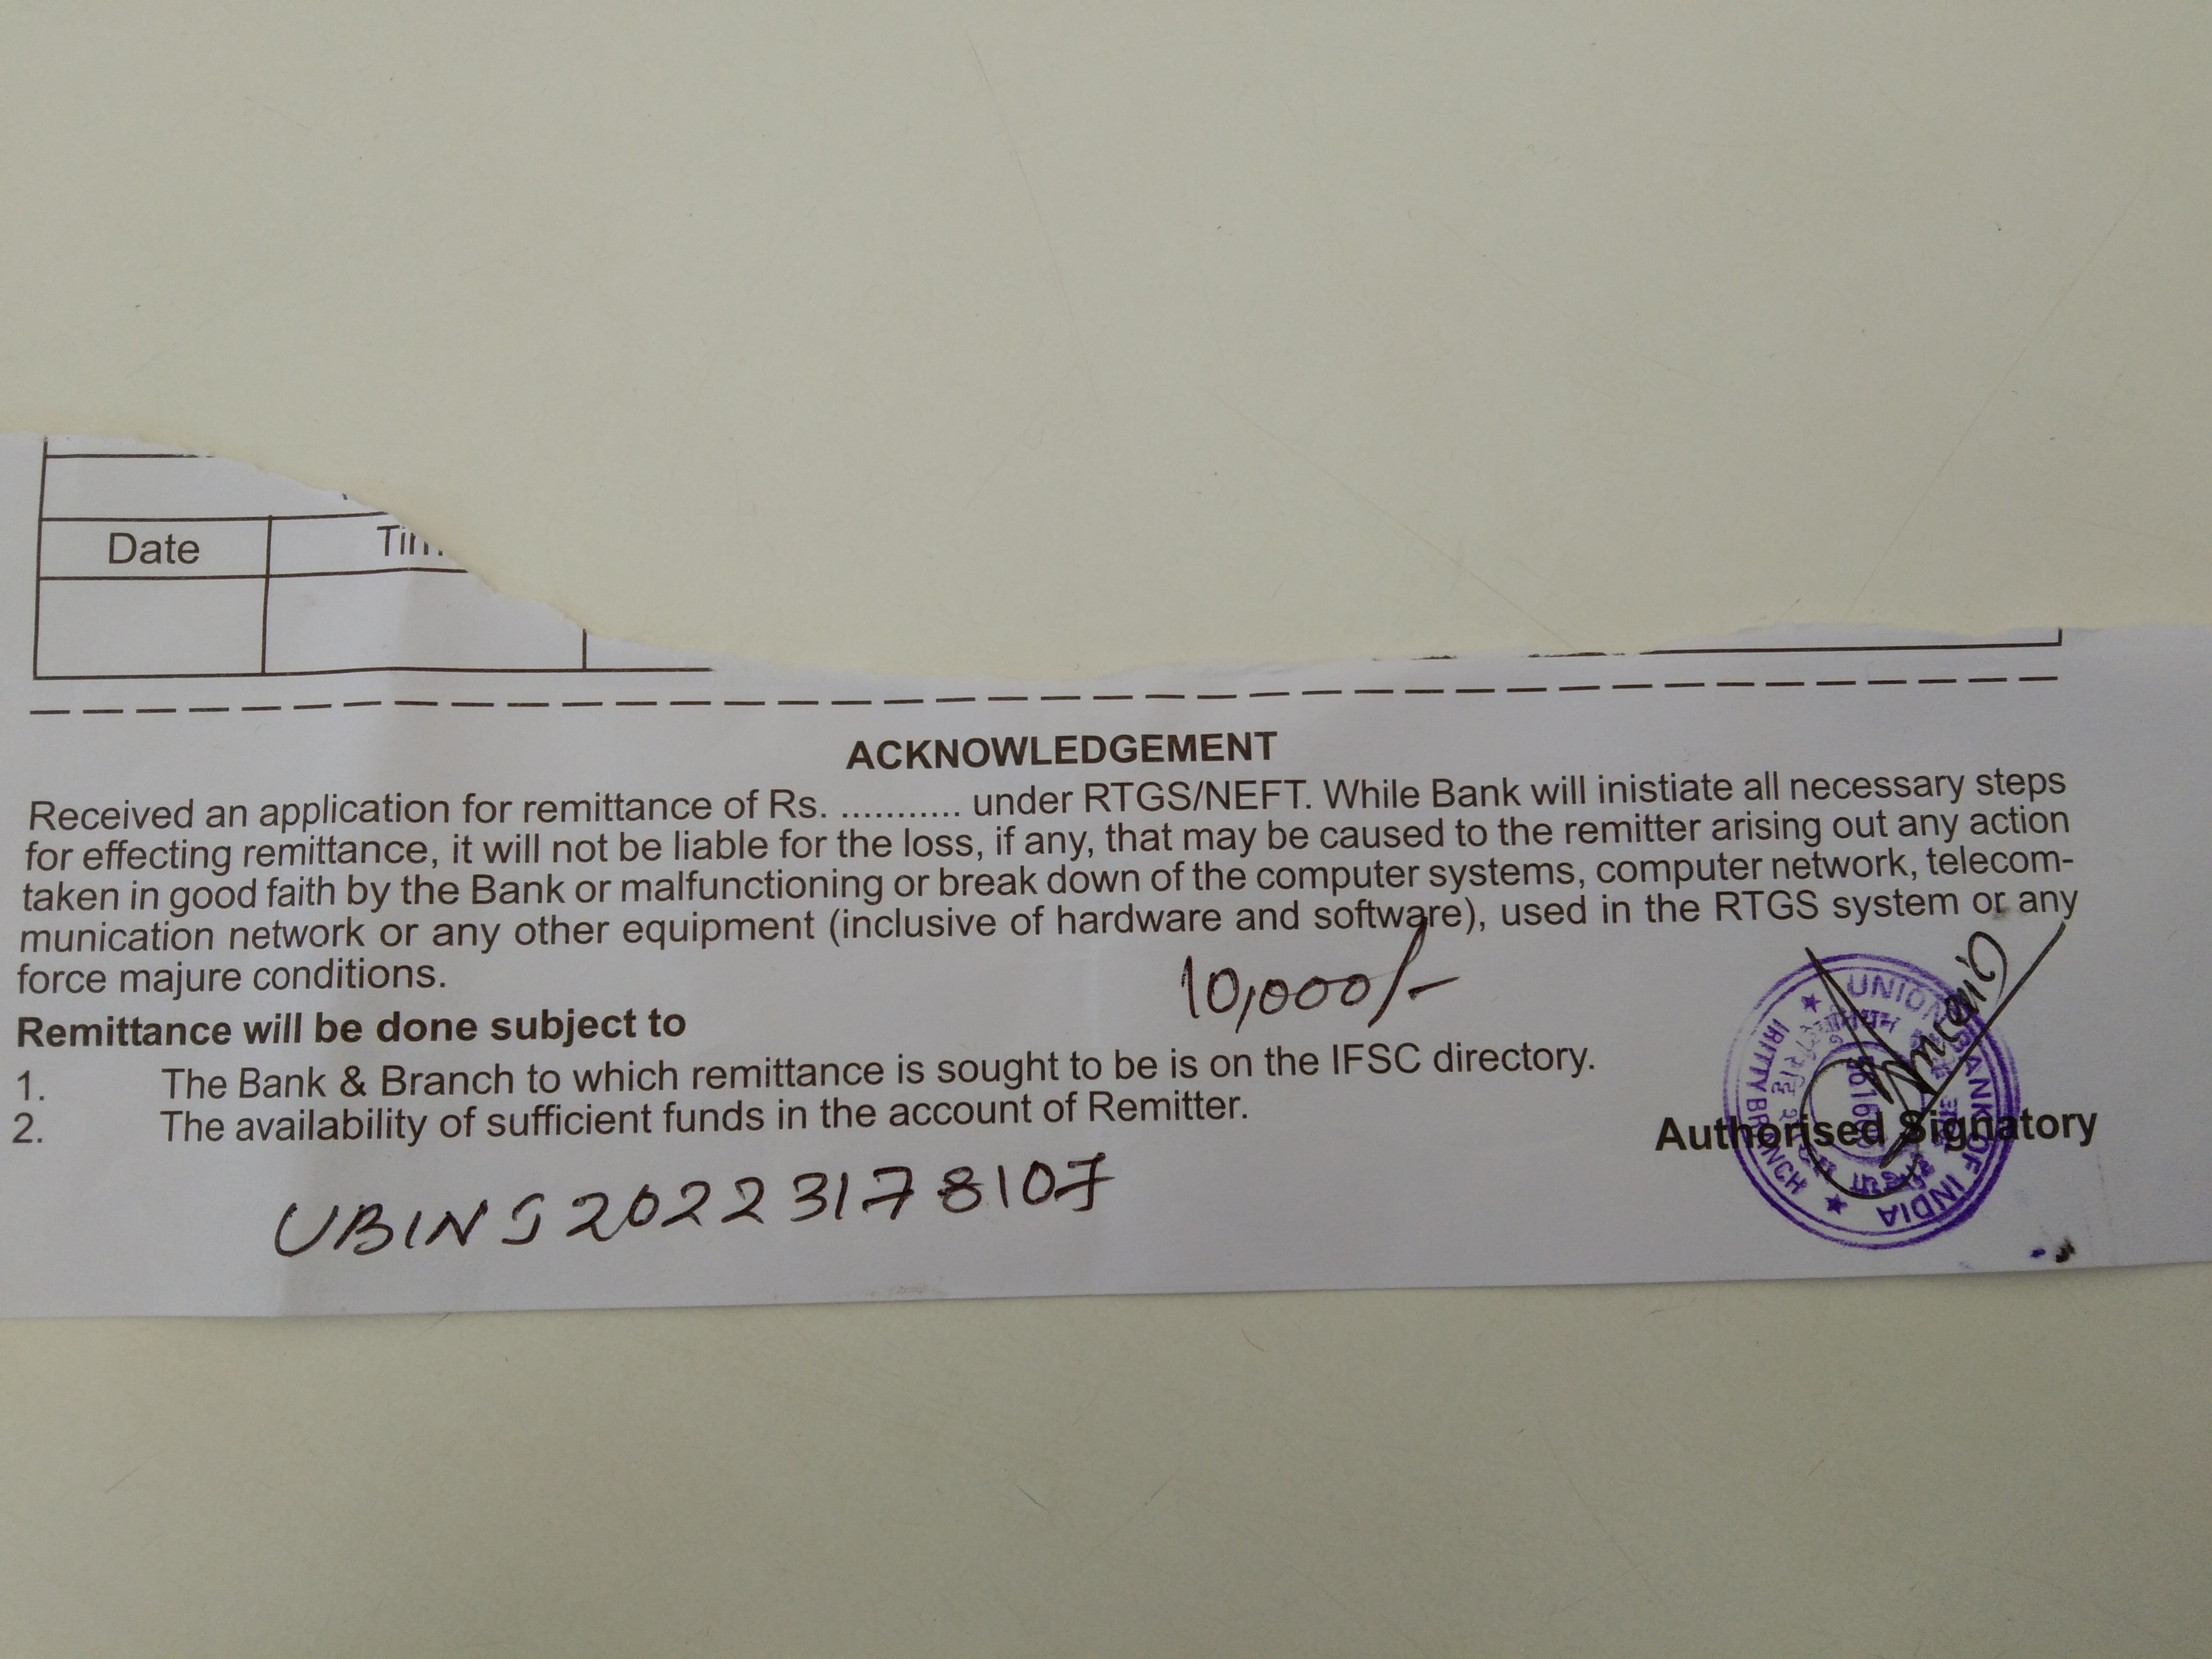 Date
ACKNOWLEDGEMENT
Received an application for remittance of Rs. ............ under RTGS/NEFT. While Bank will inistiate all necessary steps
for effecting remittance, it will not be liable for the loss, if any, that may be caused to the remitter arising out any action
taken in good faith by the Bank or malfunctioning or break down of the computer systems, computer network, telecom-
munication network or any other equipment (inclusive of hardware and software), used in the RTGS system or any
force majure conditions.
10,000/-
Remittance will be done subject to
1. The Bank & Branch to which remittance is sought to be is on the IFSC directory.
2. The availability of sufficient funds in the account of Remitter.
Authorised Signatory
UNION BANK OF INDIA
IRITTY BRANCH
UBINS20223178107